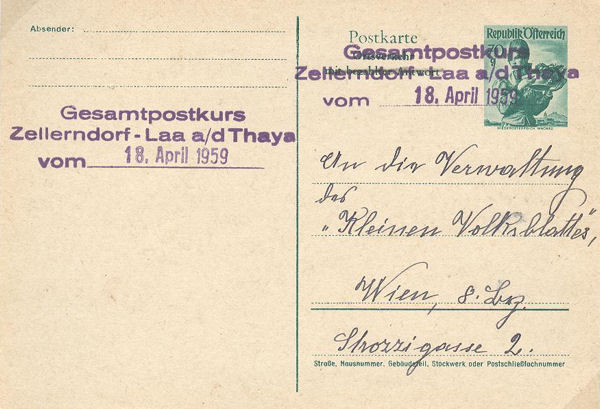 Absender:
Postkarte
mit bezahlter Antwort
Republik Österreich
70
g
NIEDERÖSTERREICH WACHAU
Gesamtpostkurs
Zellerndorf-Laa a/d Thaya
vom 18. April 1959
Gesamtpostkurs
Zellerndorf-Laa a/d Thaya
vom 18. April 1959
An die Verwaltung
des
"Kleinen Volksblattes",
Wien, 8. Bez.
Strozzigasse 2.
Straße, Hausnummer, Gebäudeteil, Stockwerk oder Postschließfachnummer